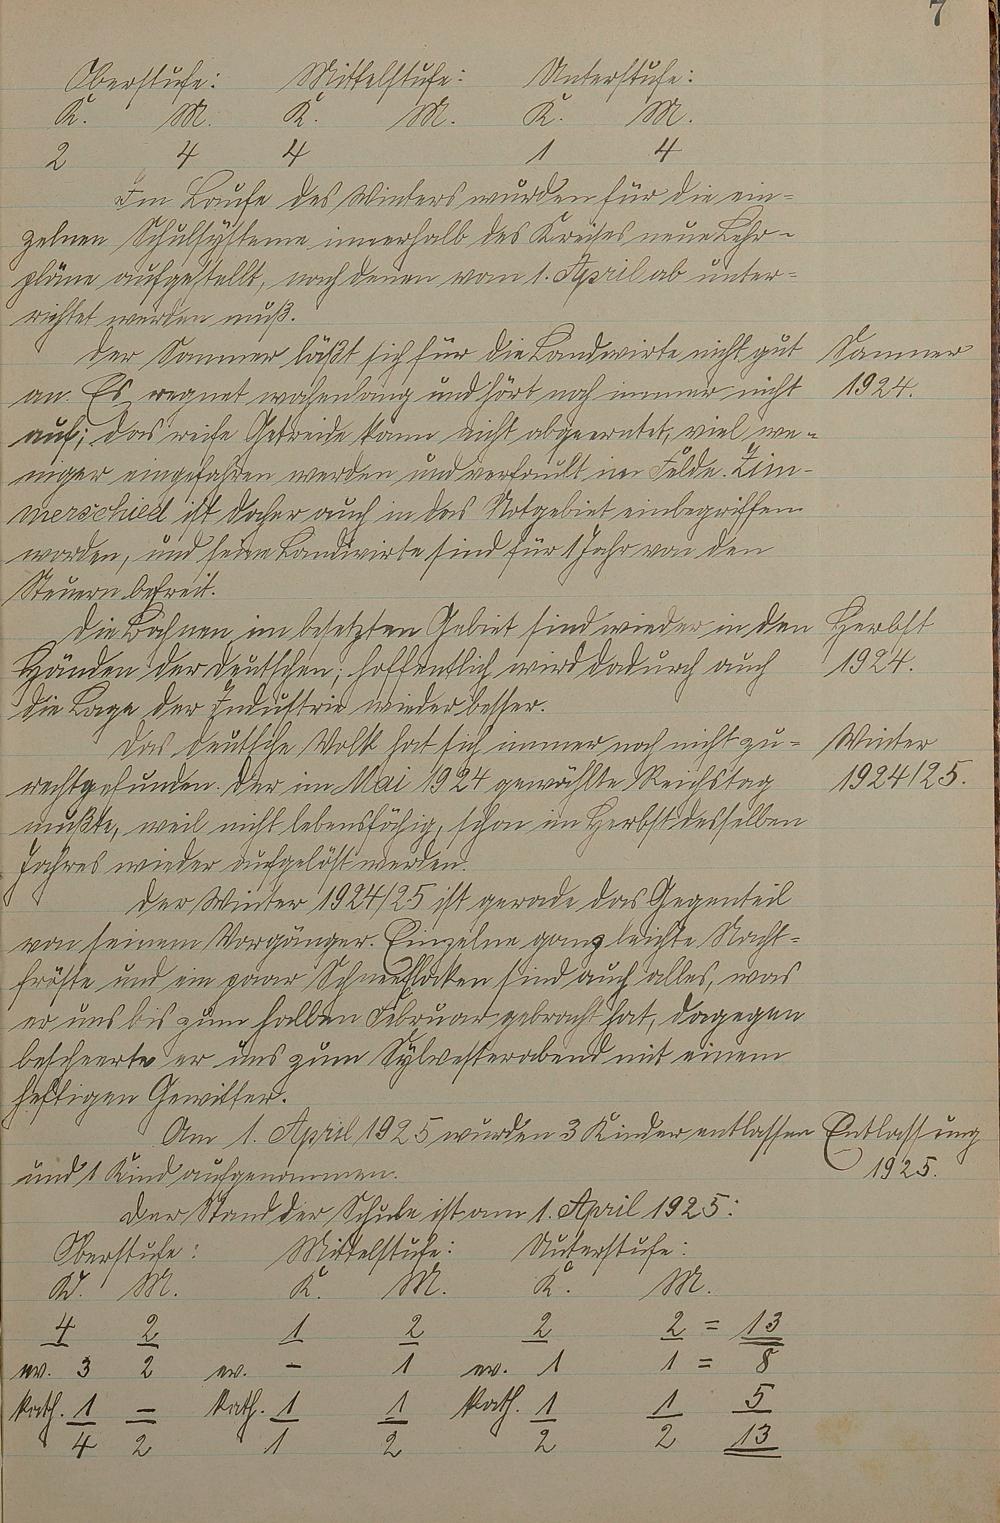 7
Oberstufe: Mittelstufe: Unterstufe:
K. M. K. M. K. M.
2 4 4 1 4
Im Laufe des Winters wurden für die ein-
zelnen Schulsysteme innerhalb des Kreises neue Lehr-
pläne aufgestellt, nach denen vom 1. April ab unter-
richtet werden muß.
Der Sommer läßt sich für die Landwirte nicht gut
Sommer
1924.
an. Es regnet wochenlang und hört noch immer nicht
auf; das reife Getreide kann nicht abgeerntet, viel we-
niger eingefahren werden und verfault im Felde. Zim-
merschied ist daher auch in das Notgebiet einbegriffen
worden, und seine Landwirte sind für 1 Jahr von den
Steuern befreit.
Die Bahnen im besetzten Gebiet sind wieder in den
Herbst
1924.
Händen der Deutschen; hoffentlich wird dadurch auch
die Lage der Industrie wieder besser.
Das deutsche Volk hat sich immer noch nicht zu-
Winter
1924/25.
rechtgefunden. Der im Mai 1924 gewählte Reichstag
mußte, weil nicht lebensfähig, schon im Herbst desselben
Jahres wieder aufgelöst werden.
Der Winter 1924/25 ist gerade das Gegenteil
von seinem Vorgänger. Einzelne ganz leichte Nacht-
fröste und ein paar Schneeflocken sind auch alles, was
er uns bis zum halben Februar gebracht hat, dagegen
bescheerte er uns zum Sylvesterabend mit einem
heftigen Gewitter.
Am 1. April 1925 wurden 3 Kinder entlassen
Entlassung
1925.
und 1 Kind aufgenommen.
Der Stand der Schule ist am 1. April 1925:
Oberstufe: Mittelstufe: Unterstufe:
K. M. K. M. K. M.
4 2 1 2 2 2 = 13
ev. 3 2 ev. - 1 ev. 1 1 = 8
kath. 1 - kath. 1 1 kath. 1 1 5
4 2 1 2 2 2 13